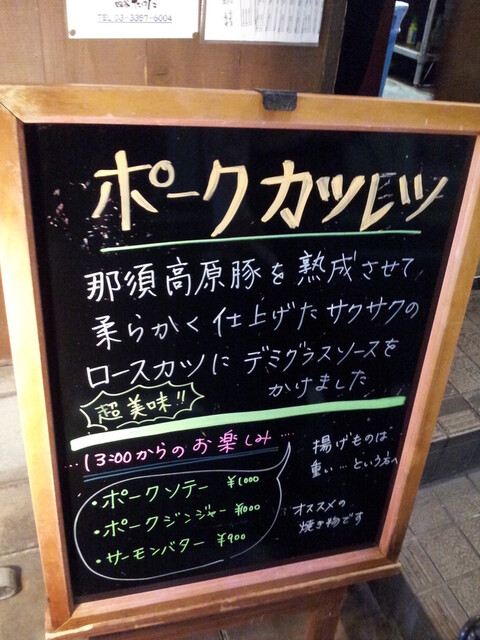 TEL 03-3367-6004
ポークカツレツ
那須高原豚を熟成させて
柔らかく仕上げたサクサクの
ロースカツにデミグラスソースを
かけました
超美味!!
…13:00からのお楽しみ…
・ポークソテー ¥1000
・ポークジンジャー ¥1000
・サーモンバター ¥900
揚げものは
重い…という方へ
オススメの
焼き物です